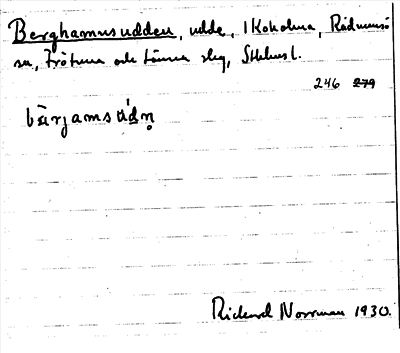 Berghamnsudden, udde, i Kokolma, Rådmansö
sn, Frötuna och Länna slg, Sthlms l.
246 279
bärjamsúdn̥
Rickard Norrman 1930.